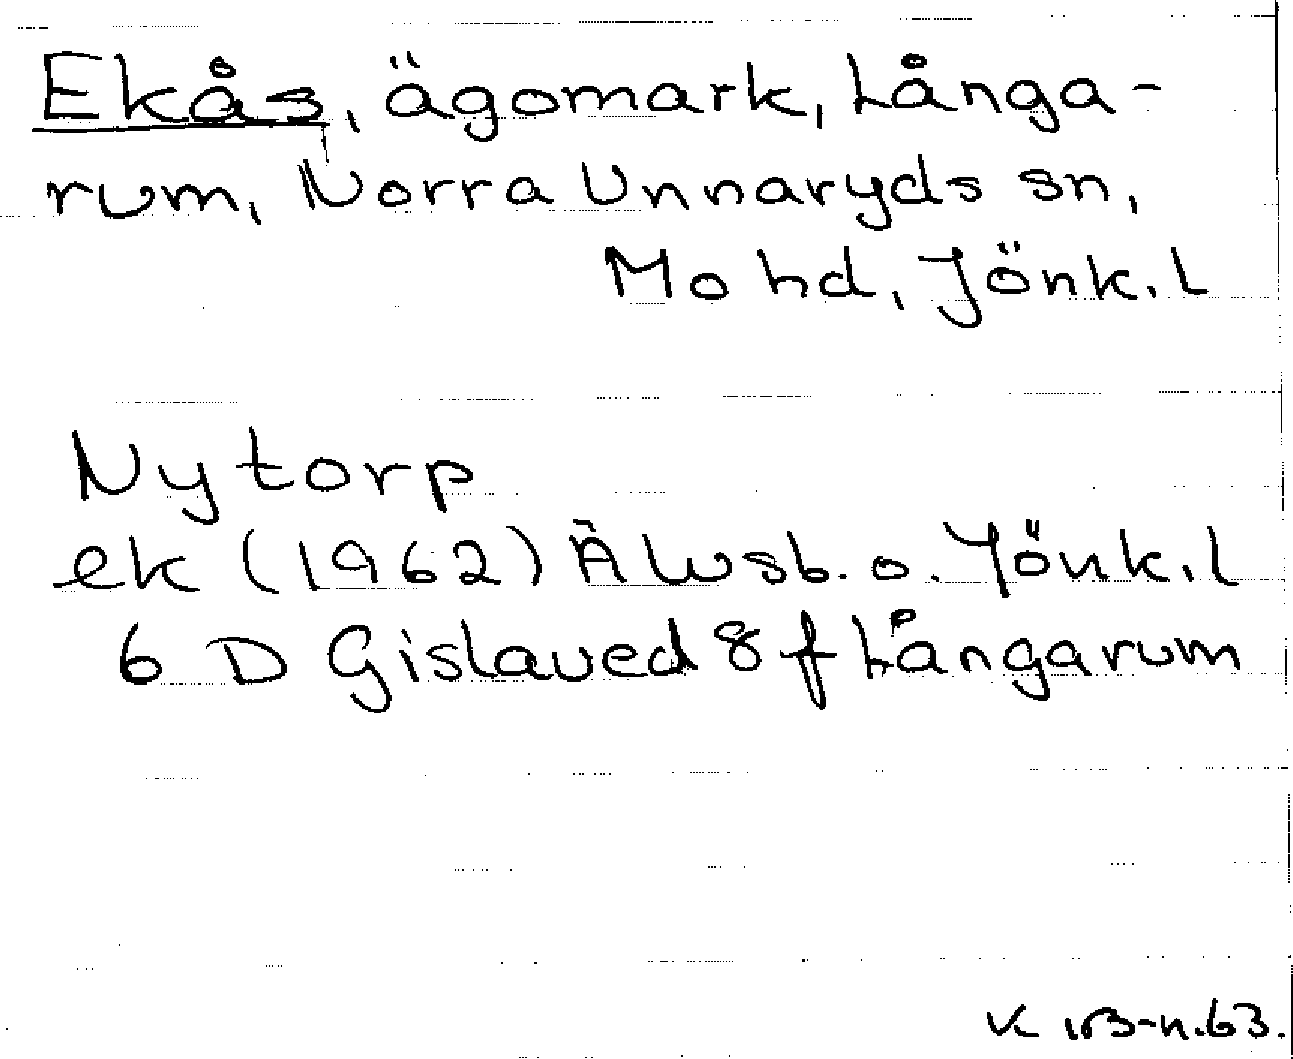 Ekås, ägomark, Långa-
rum, Norra Unnaryds sn,
Mo hd, Jönk. l
Nytorp
ek (1962) Älvsb. o. Jönk. l
6 D Gislaved 8 f Långarum